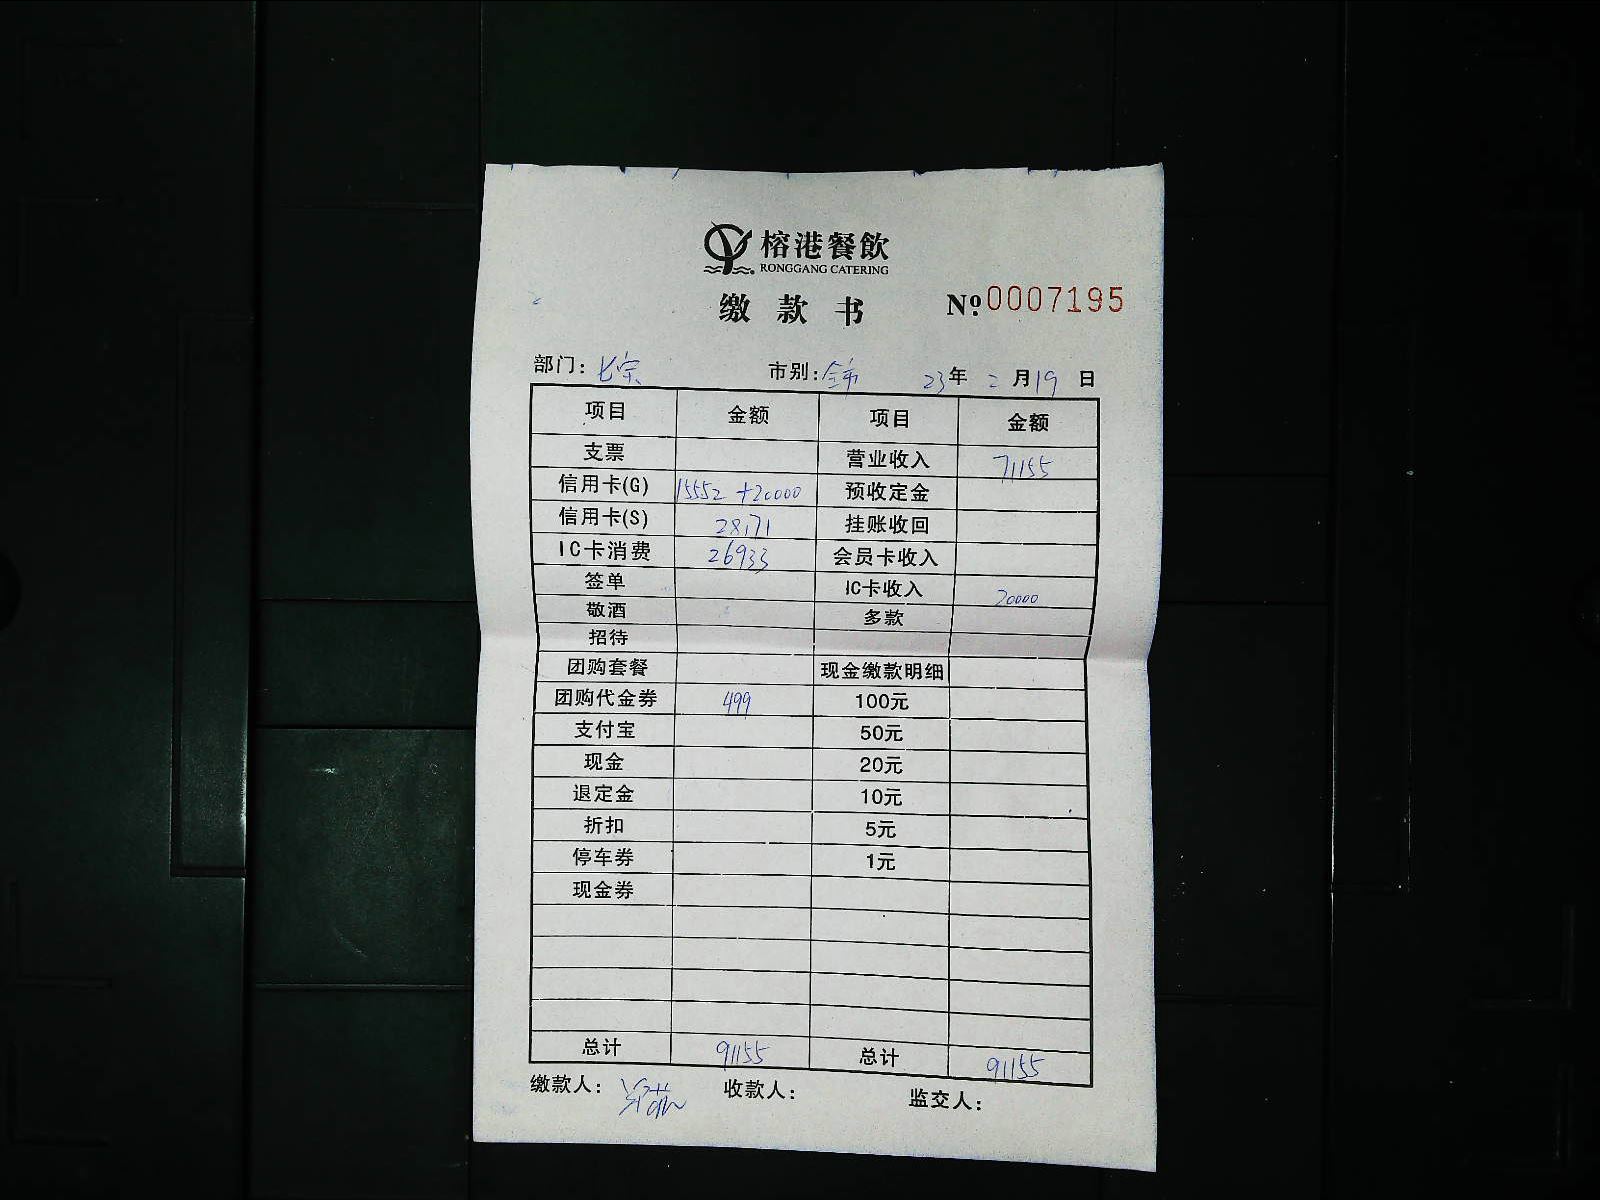 榕港餐飲
RONGGANG CATERING
缴款书 №0007195
部门: 七宗 市别: 全市 23年 二月19日
项目 金额 项目 金额
支票 营业收入 71155
信用卡(G) 15552 +20000 预收定金
信用卡(S) 28171 挂账收回
IC卡消费 26933 会员卡收入
签单 IC卡收入 20000
敬酒 多款
招待
团购套餐 现金缴款明细
团购代金券 499 100元
支付宝 50元
现金 20元
退定金 10元
折扣 5元
停车券 1元
现金券
总计 91155 总计 91155
缴款人: 收款人: 监交人: